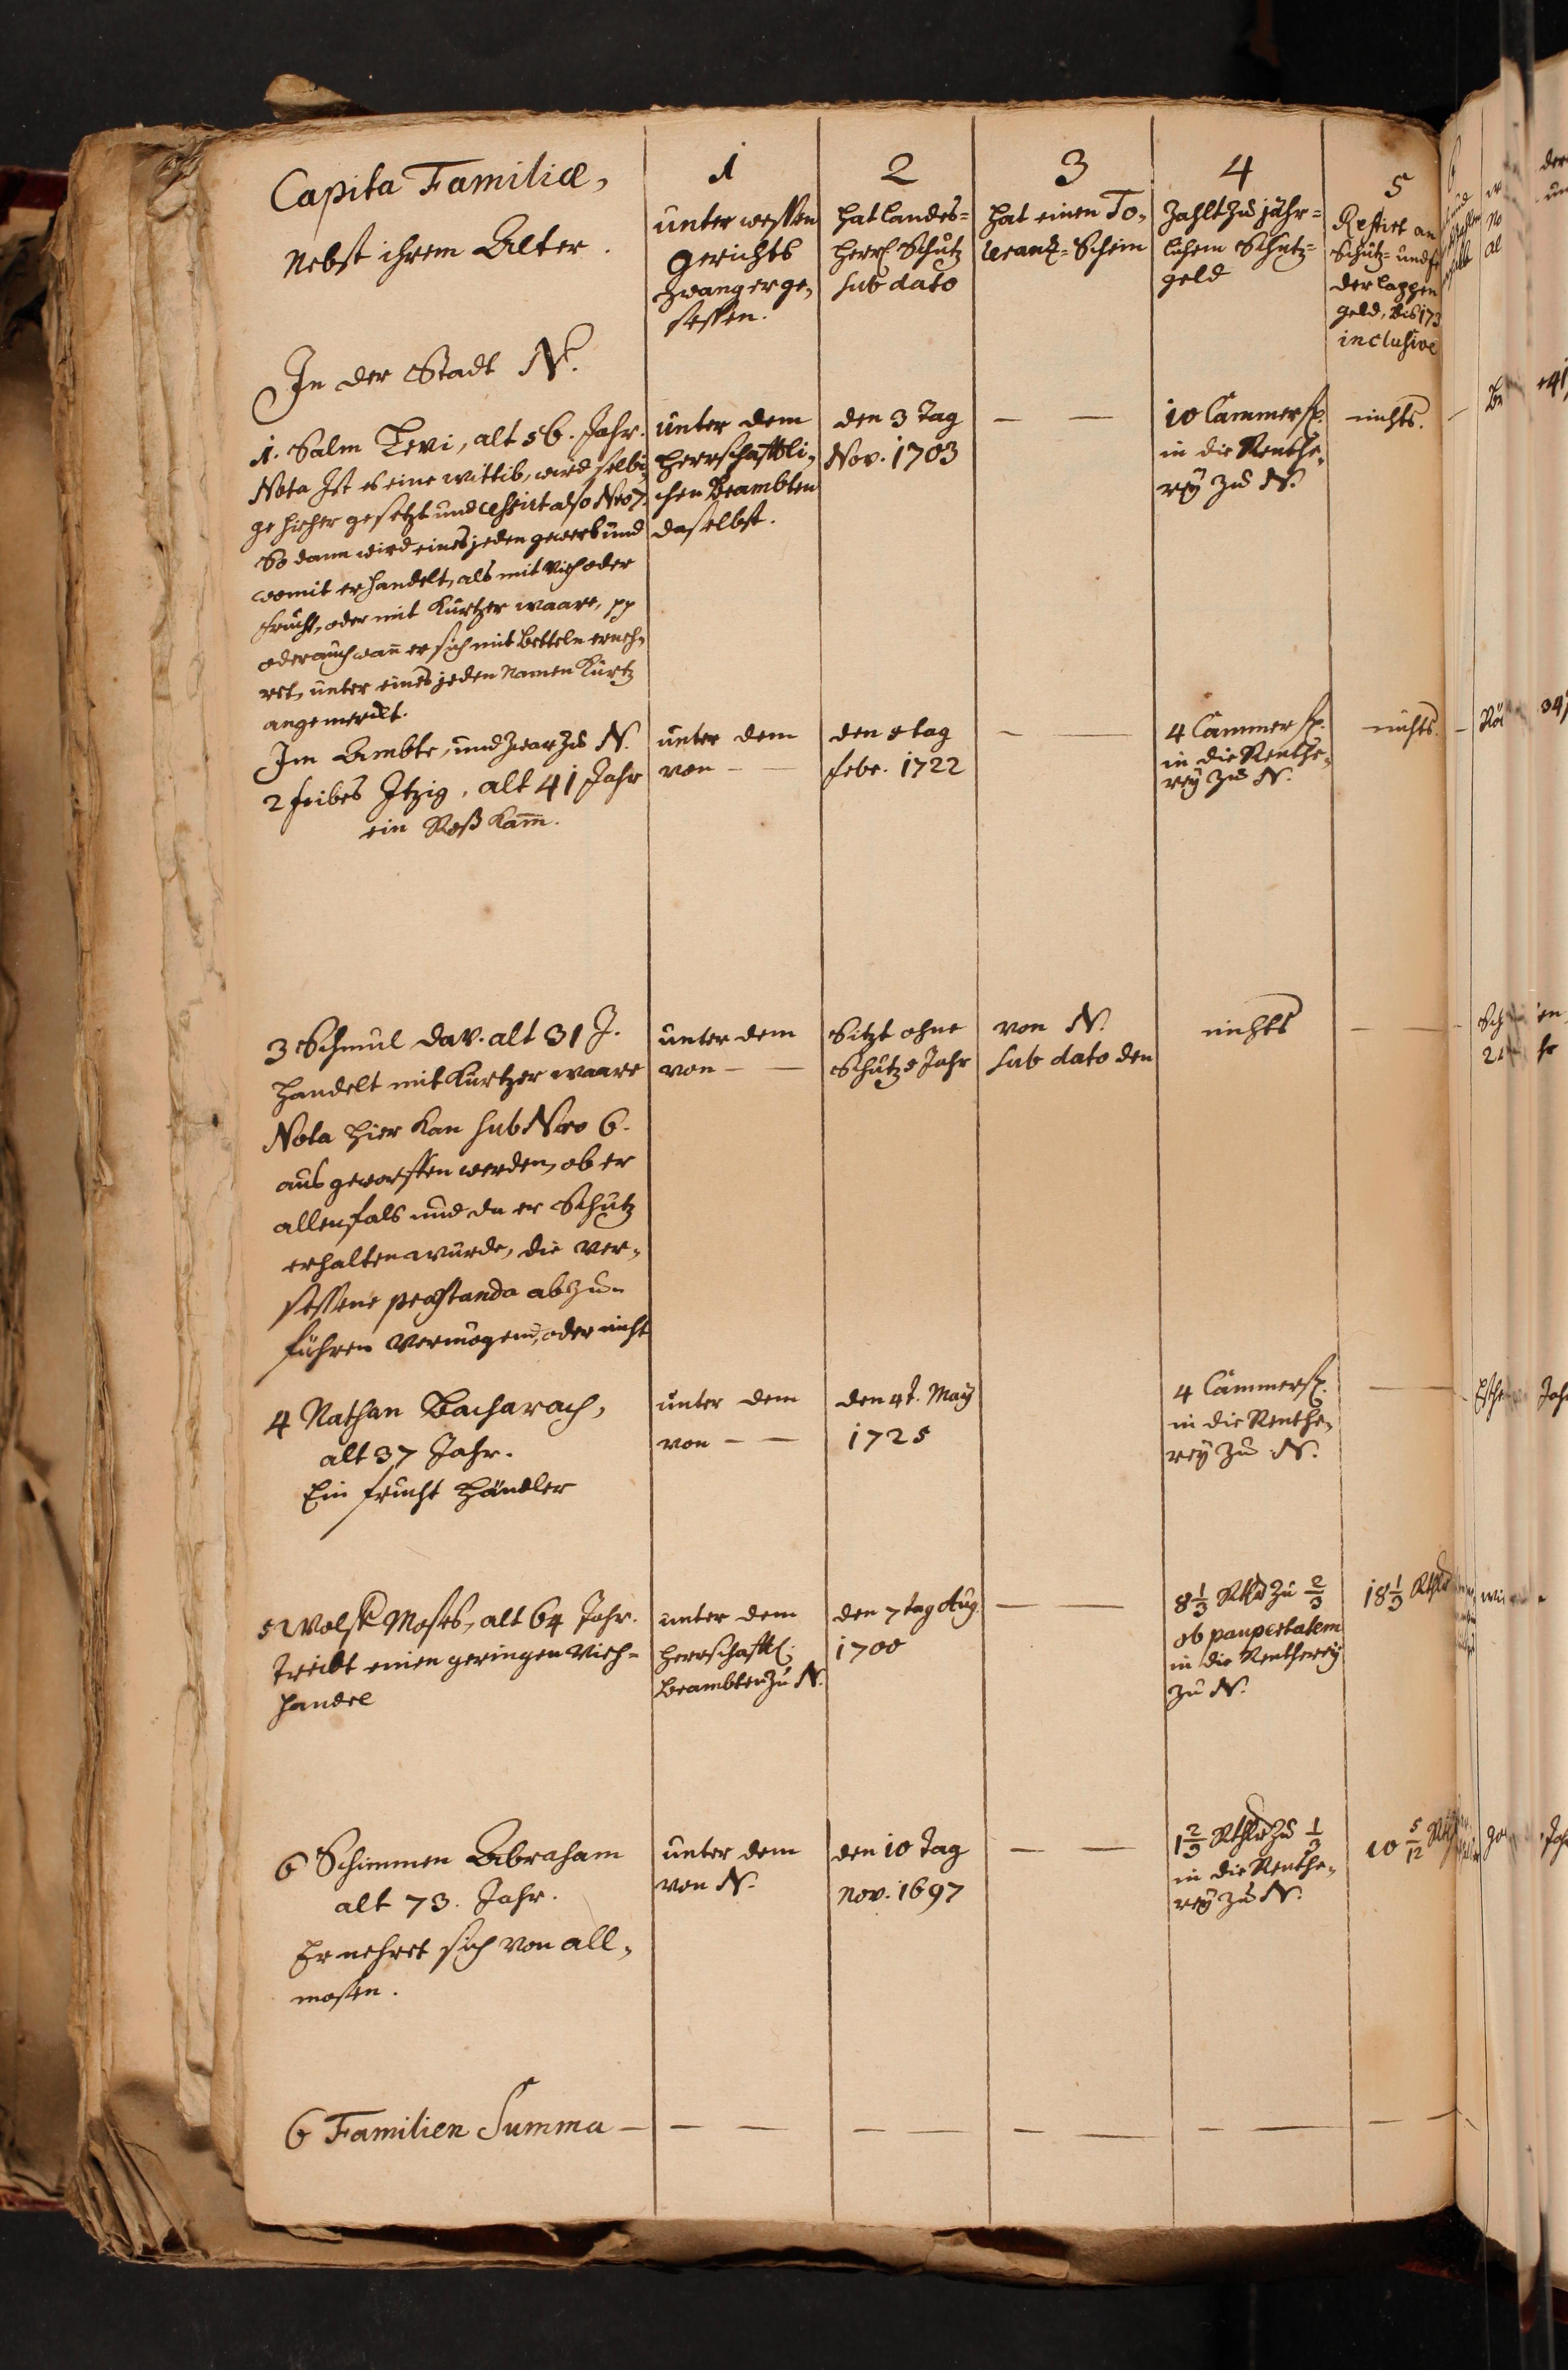 Capita Familiæ,
Nebst ihrem Alter.
1
unter wessen
Gerichts
Zwang er ge,
sessen.
2
hat landes=
herrl. Schutz
sub dato
3
hat einen To,
lerantz=Schein
4
Zahlt zu jähr=
lichem Schutz=
geld
5
Restirt an
Schutz= und
der lappen
geld, bis 173
inclusive
In der Stadt N.
1. Salm Levi, alt 56. Jahr.
Nota Ist es eine wittib, wird selbi,
ge hieher gesetzt und also Nro 7.
So dann wird eines jeden gewerb und
womit er handelt, als mit Vieh oder
frucht, oder mit Kurtzer waare, pp
oder auch wañ er sich mit betteln erneh,
ret, unter eines jeden Namen Kurtz
angemerckt.
unter dem
herrschafftli,
chen Beambten
daselbst.
den 3 Tag
Nov. 1703
— —
10 Cammer
in die Renthe,
rey zu N.
nichts.
Im Ambte, und zwar zu N.
2 feibes Itzig, alt 41 Jahr
ein Roß Kam̄.
unter dem
von — —
den 5 tag
febr. 1722
— —
4 Cammer
in die Renthe,
rey zu N.
nichts.
3 Schmul Dav. alt 31 J.
handelt mit Kurtzer waare
Nota hier Kan sub Nro 6.
aus geworffen werden, ob er
allenfals und da er Schutz
erhalten würde, die ver,
sessene præstanda abzu=
führen vermögend, oder nicht
unter dem
von — —
Sitzt ohne
Schutz 5 Jahr
von N.
sub dato den
nichts
— —
4 Nathan Bacharach,
alt 37 Jahr.
Ein frucht händler
unter dem
von — —
den 4 t. May
1725
4 Cammer
in die Renthe,
rey zu N.
—
5 Wolff Moses, alt 64 Jahr.
Treibt einen geringen Vieh=
handel
unter dem
herrschafftl.
Beambten zu N.
den 7 tag Aug.
1700
— —
8 1/3 Rthlr zu 2/3
ob paupertatem
in die Rentherey
zu N.
18 1/3 Rthlr
6 Schimmen Abraham
alt 73. Jahr.
Er nehret sich von all,
mosen.
unter dem
von N.
den 10 Tag
Nov. 1697
— —
1 2/3 Rthlr zu 1/3
in die Renthe,
rey zu N.
10 5/12
6 Familien Summa — — — — — — — — — — —